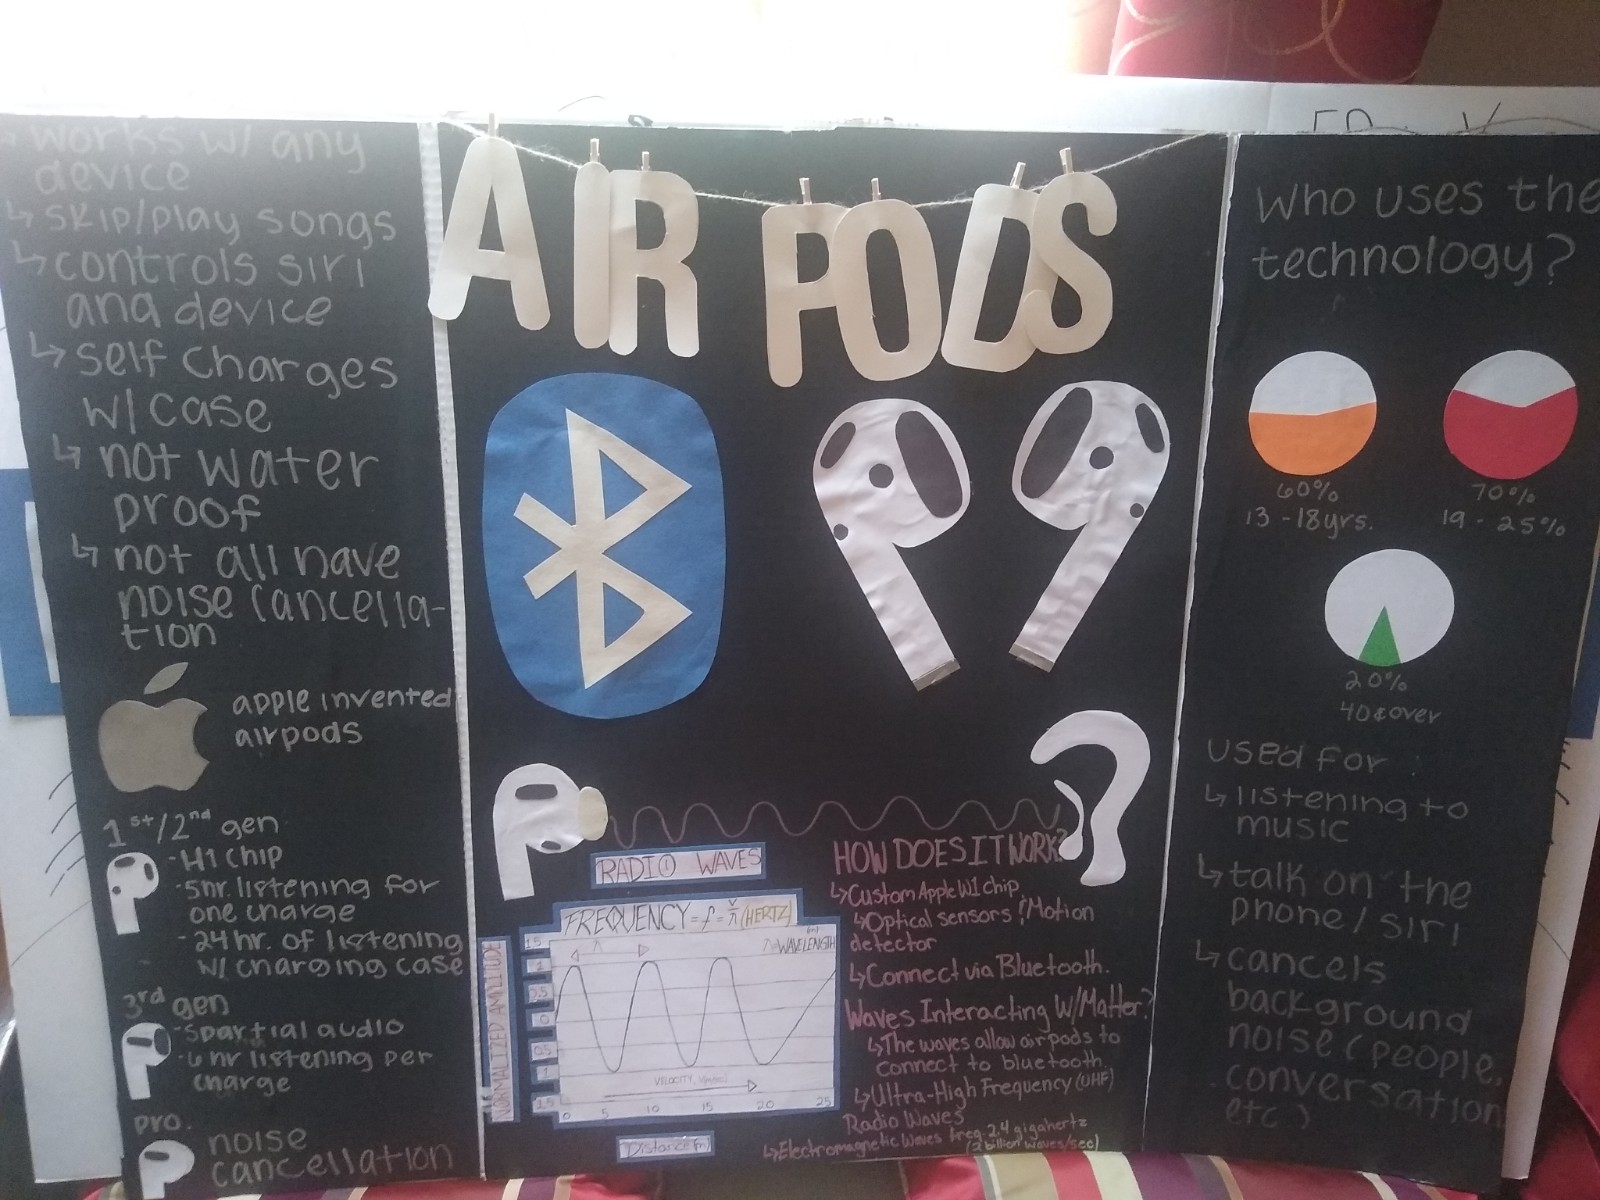 works w/ any
device
↳ skip/play songs
↳ controls siri
and device
↳ self charges
w/ case
↳ not water
proof
↳ not all have
noise cancella-
tion
apple invented
airpods
1st/2nd gen
- H1 chip
- 5hr. listening for
one charge
- 24 hr. of listening
w/ charging case
3rd gen
- Spartial audio
- 6 hr listening per
charge
pro.
noise
cancellation
AIR PODS
RADIO WAVES
FREQUENCY = f = v/λ (HERTZ)
λ=WAVELENGTH (m)
NORMALIZED AMPLITUDE
1.5
1
0.5
0
0.5
1
1.5
VELOCITY, V(m/sec)
0 5 10 15 20 25
Distance (m)
HOW DOES IT WORK?
↳ Custom Apple W1 chip
↳ Optical sensors & Motion
detector
↳ Connect via Bluetooth.
Waves Interacting W/Matter?
↳ The waves allow airpods to
connect to bluetooth.
↳ Ultra-High Frequency (UHF)
Radio Waves
↳ Electromagnetic Waves freq. 2.4 gigahertz
(2 billion waves/sec)
Who uses the
technology?
60%
13 - 18 yrs.
70%
19 - 25%
20%
40 & over
used for:
↳ listening to
music
↳ talk on the
phone / siri
↳ cancels
background
noise (people,
conversation
etc)